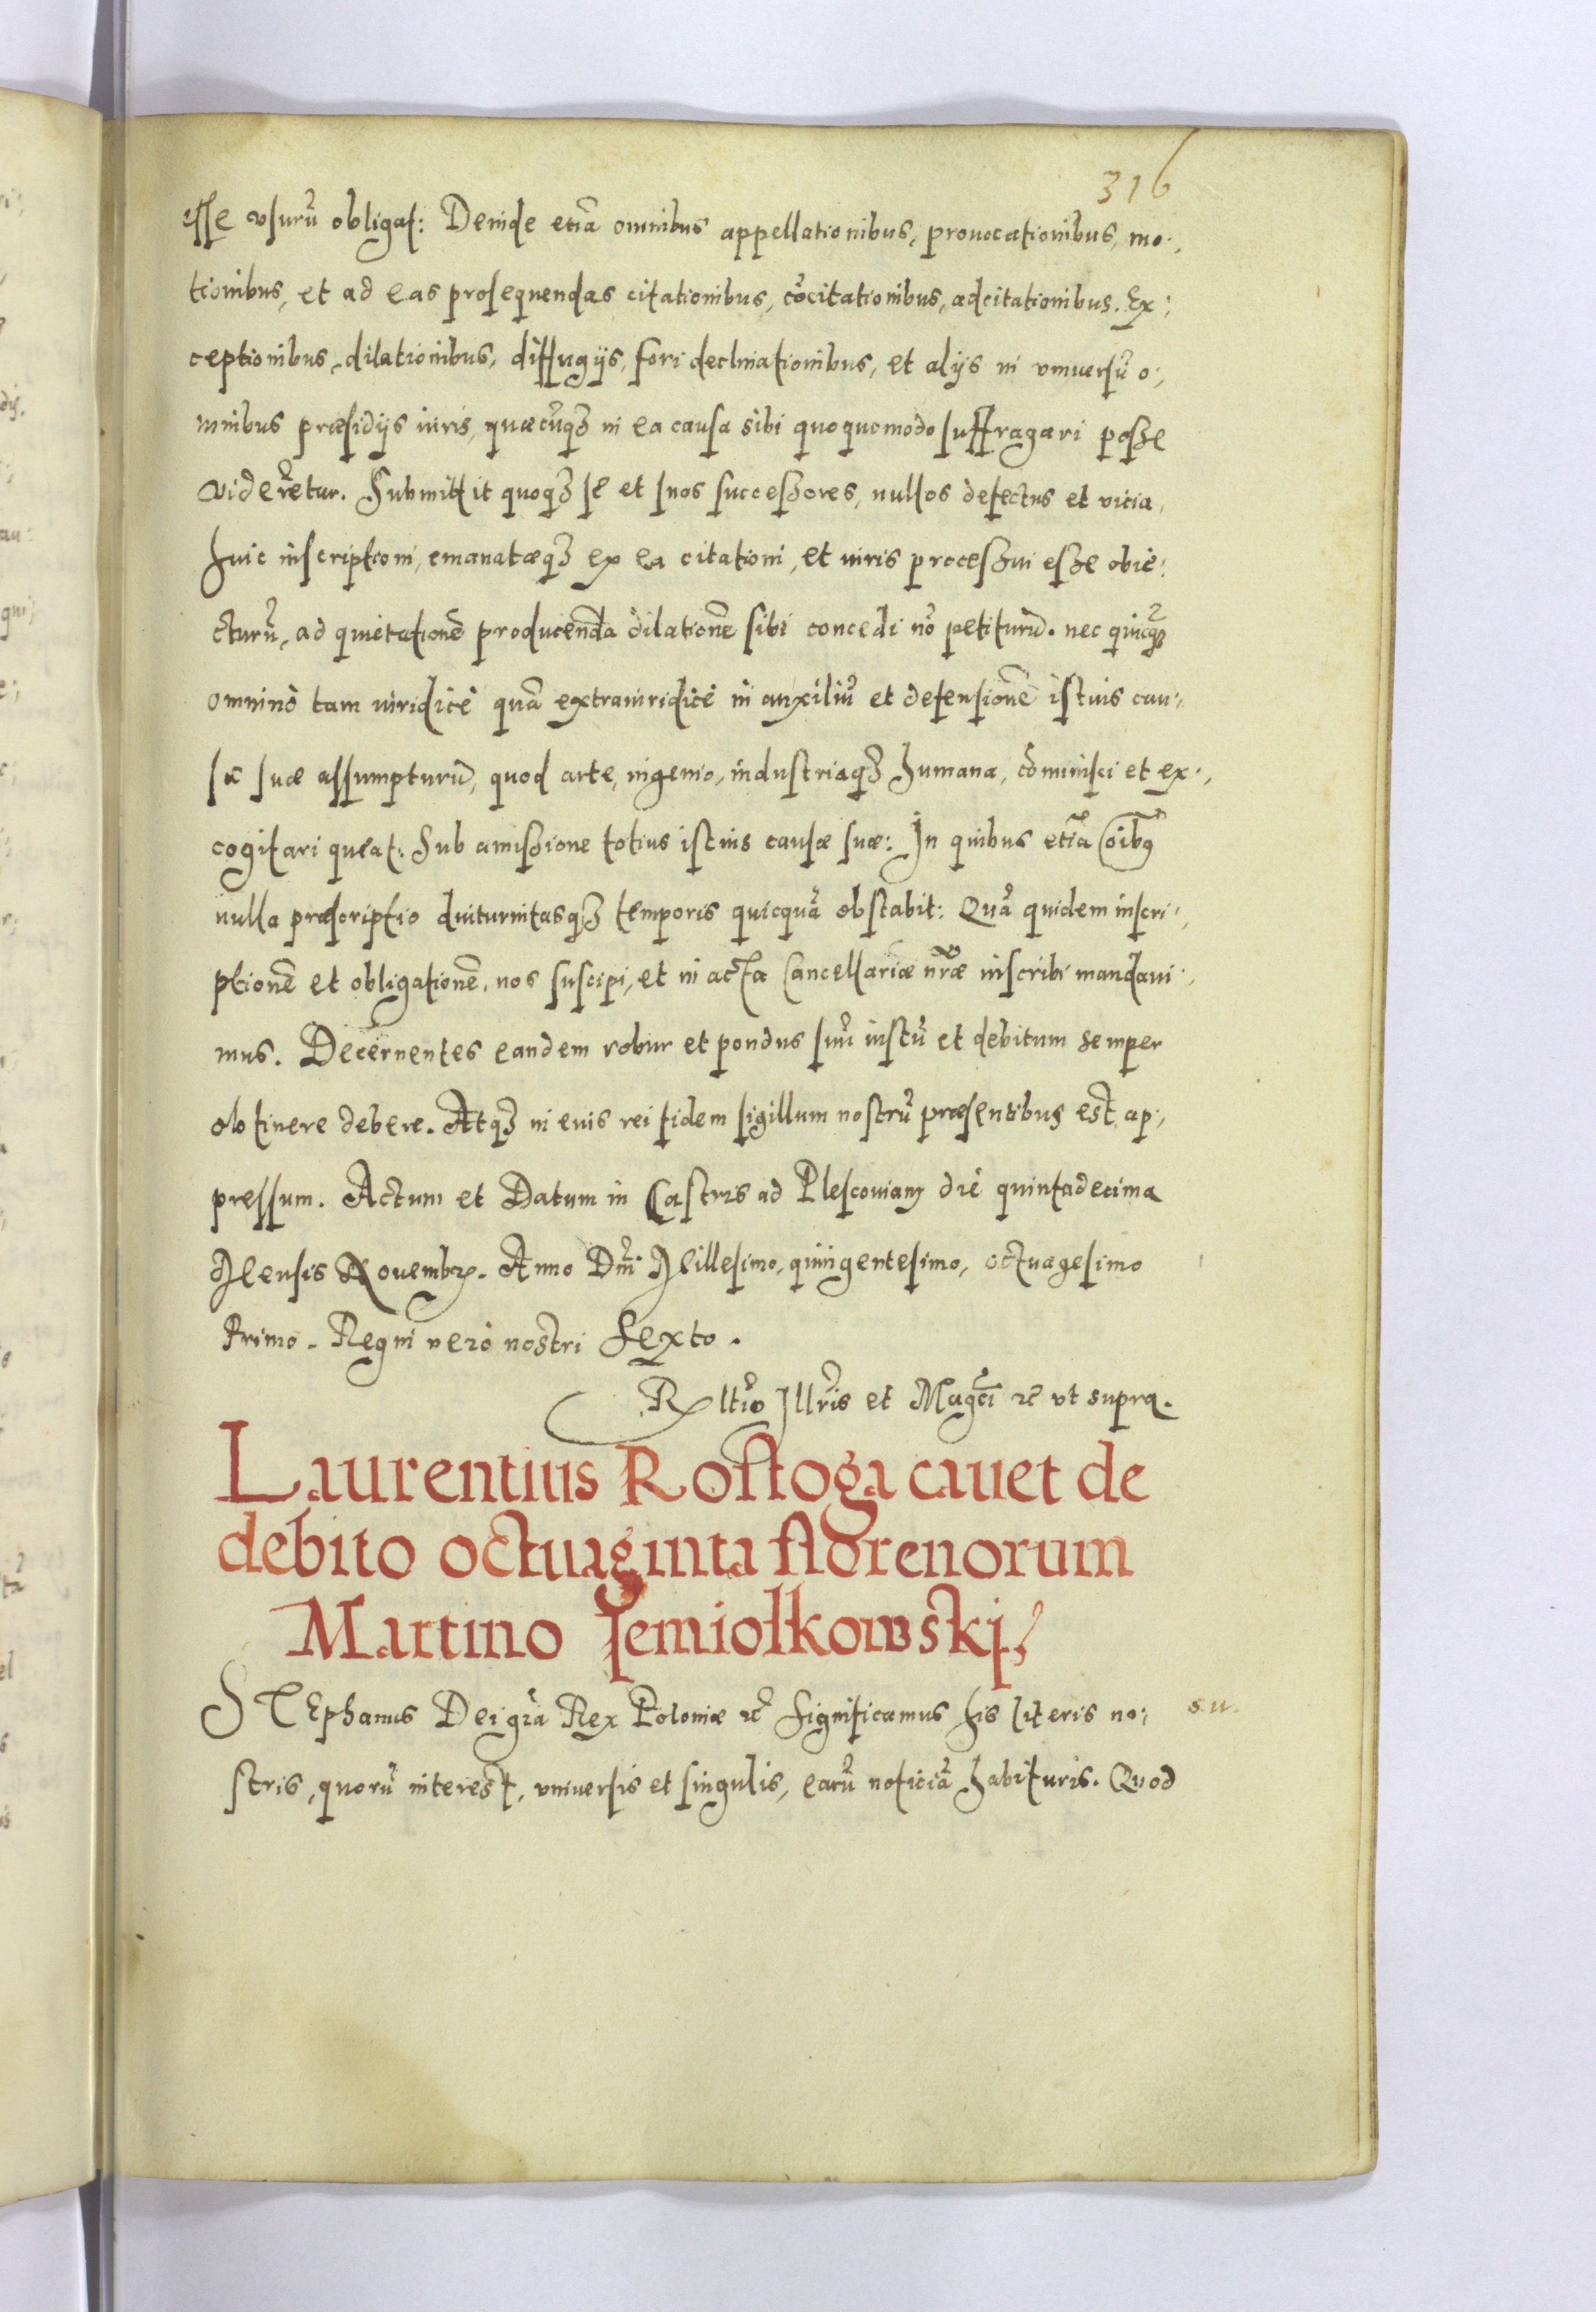 316
esse vsurũ obligat: Deinde etiã omnibus appellationibus, prouocationibus, mo:,
tionibus, et ad eas prosequendas citationibus, cõcitationibus, adcitationibus. Ex:
ceptionibus, dilationibus, diffugijs, fori declinationibus, et alijs in vniuersũ o:,
mnibus præsidijs iuris, quæcũq3 in ea causa sibi quoquomodo suffragari posse
videretur. Submittit quoq3 se et suos successores, nullos defectus et vicia,
huic inscriptioni, emanatæq3 ex ea citationi, et iuris processui esse obie:
cturũ, ad quietationẽ producenda dilationẽ sibi concedi nõ petiturũ. nec quicq̃
omninò tam iuridicè quã extraiuridicè in auxiliũ et defensionẽ istius cau:,
sæ suæ assumpturũ, quod arte, ingenio, industriaq3 humana, cõminisci et ex:,
cogitari queat: Sub amissione totius istius causæ suæ: In quibus etiã oib9
nulla præscriptio diuturnitasq3 temporis quicquã obstabit: Quã quidem inscri:,
ptionẽ et obligationẽ, nos suscipi, et in acta Cancellariæ nr̃æ inscribi mandaui:,
mus. Decernentes eandem robur et pondus suũ iustũ et debitum semper
obtinere debere. Atq3 in euis rei fidem sigillum nostrũ præsentibus est ap:,
pressum. Actum et Datum in Castris ad Plescouiam die quintadecima
Mensis Nouembr. Anno Dñi Millesimo, quingentesimo, octuagesimo
Primo. Regni verò nostri Sexto.
Rltio Illr̃is et Mag̃ci &c vt supra.
Laurentius Rostoga cauet de
debito octuaginta florenorum
Martino Jemiolkowskj.
STEphanus Dei gr̃a Rex Poloniæ &c Significamus his literis no:, s.u.
stris, quorũ interest, vniuersis et singulis, earũ noticiã habituris. Quod